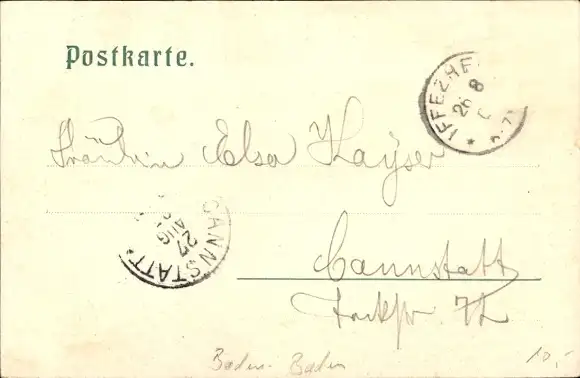 Postkarte.
IFFEZHE
26 8
Fräulein Elsa Kayser
CANNSTATT
27
AUG
Cannstatt
Baden-Baden
10,-